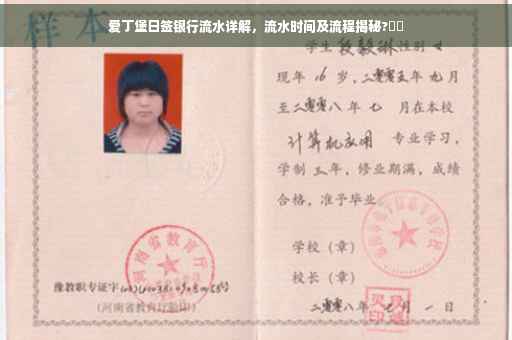 爱丁堡日签银行流水详解，流水时间及流程揭秘?
样本
学生段毅琳性别女
现年16岁，二零零五年九月
至二零零八年七月在本校
计算机应用 专业学习，
学制三年，修业期满，成绩
合格，准予毕业。
学校（章）
校长（章）
二零零八年七月一日
豫教职专证字
（河南省教育厅验印）
河南省教育厅